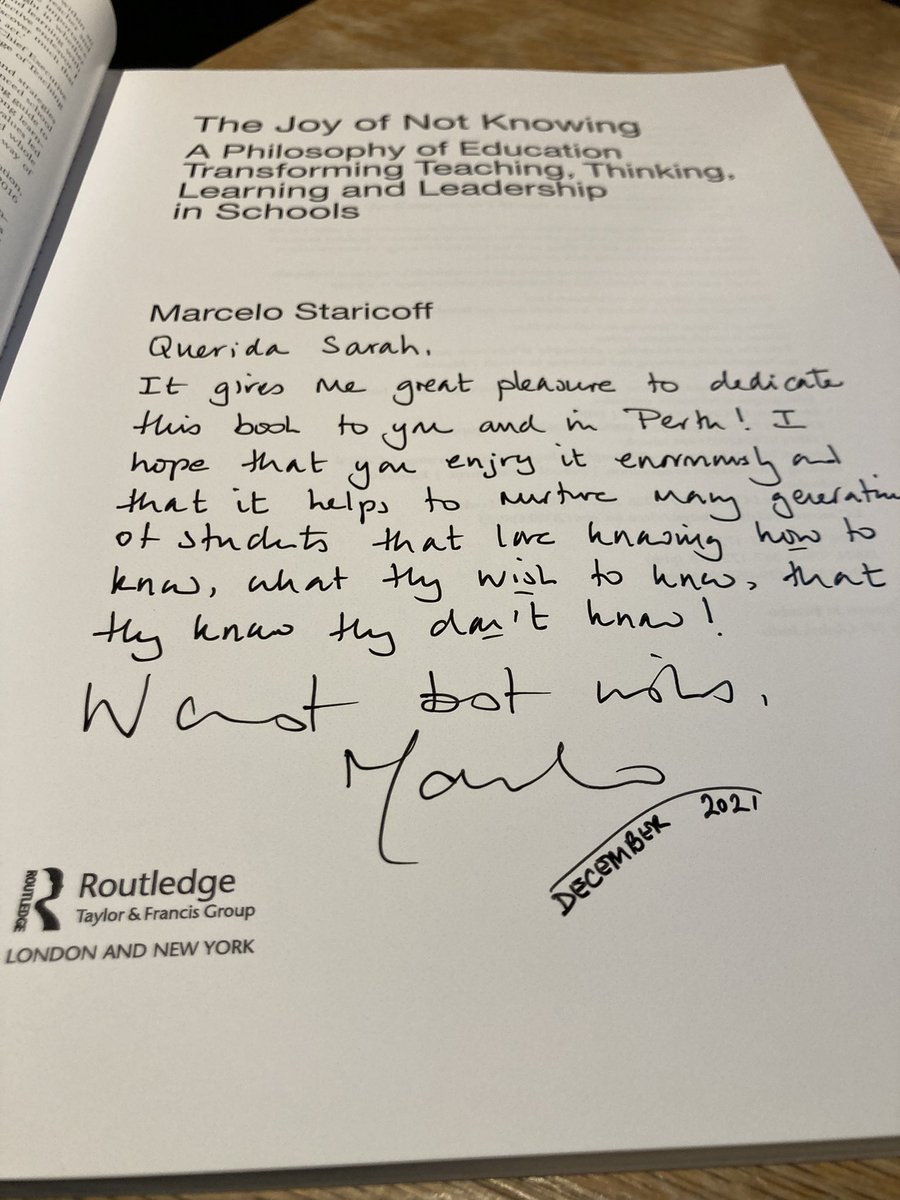 The Joy of Not Knowing
A Philosophy of Education
Transforming Teaching, Thinking,
Learning and Leadership
in Schools
Marcelo Staricoff
Querida Sarah,
It gives me great pleasure to dedicate
this book to you and in Perth! I
hope that you enjoy it enormously and
that it helps to nurture many generation
of students that love knowing how to
know, what they wish to know, that
they know they don't know!
Warmest best wishes,
Marcelo
DECEMBER 2021
ROUTLEDGE
Routledge
Taylor & Francis Group
LONDON AND NEW YORK